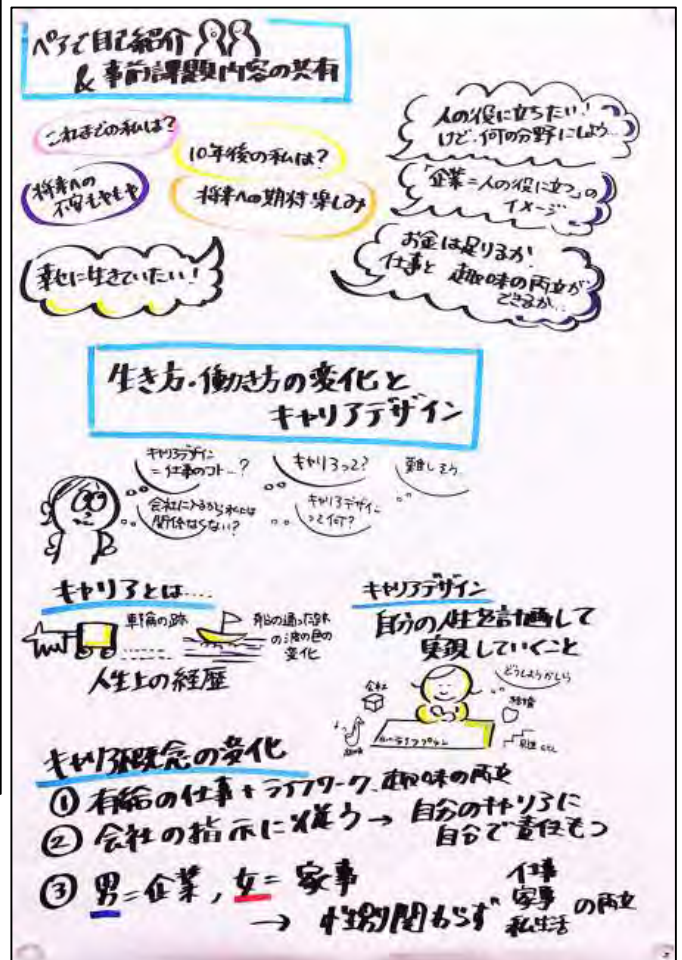 ペアで自己紹介
& 事前課題内容の共有
これまでの私は?
10年後の私は?
将来への
不安もやもや
将来への期待・楽しみ
幸せに生きていたい!
人の役に立ちたい!
けど、何の分野にしよう…
「企業=人の役に立つ」の
イメージ
お金は足りるか
仕事と 趣味の両立が
できるか…
生き方・働き方の変化と
キャリアデザイン
キャリアデザイン
=仕事のコト…?
キャリアって?
難しそう
会社に入るから私には
関係ない?
キャリアデザイン
って何?
キャリアとは....
車輪の跡
船の通った跡
の波の色の
変化
人生上の経歴
キャリアデザイン
自分の人生を計画して
実現していくこと
どうしようかしら
会社
結婚
趣味
キャリア概念の変化
① 有給の仕事+ライフワーク、趣味の両立
② 会社の指示に従う→ 自分のキャリアに
自分で責任もつ
③ 男=企業, 女= 家事
→ 性別関わらず 仕事 家事 私生活 の両立
2